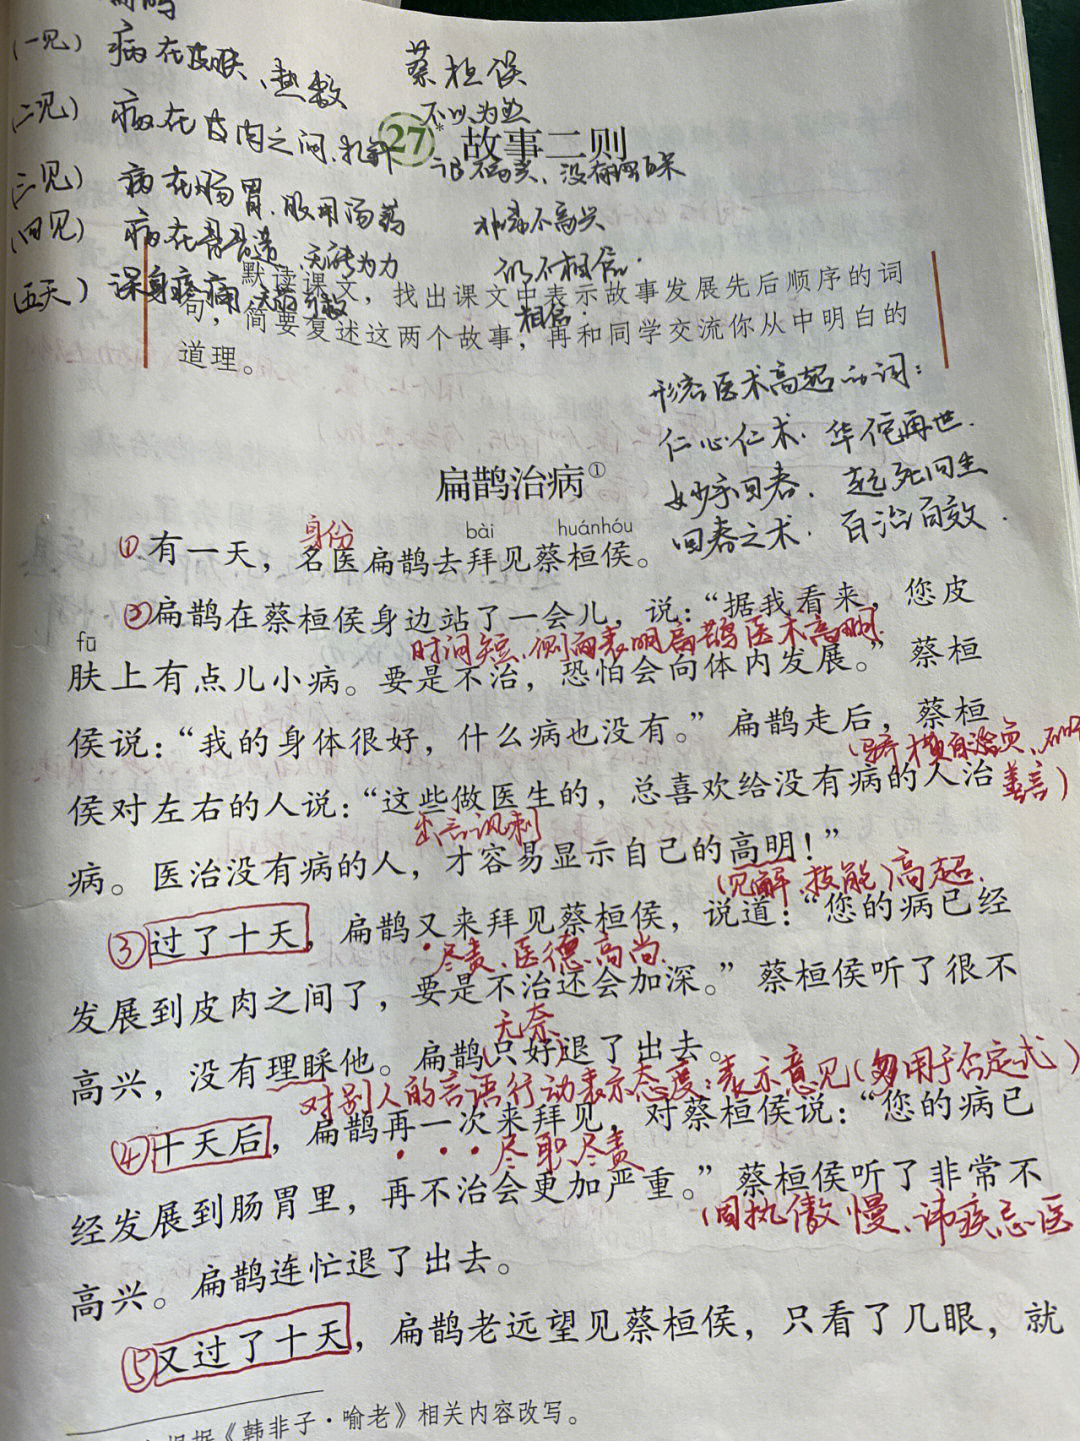 (一见) 病在皮肤、热敷 蔡桓侯
(二见) 病在皮肉之间、扎针 不以为然
27* 故事二则
(三见) 病在肠胃、服用汤药 很不高兴、没有理睬
(四见) 病在骨髓、无能为力 非常不高兴
(五天) 浑身疼痛
仍不相信
相信
默读课文，找出课文中表示故事发展先后顺序的词
句，简要复述这两个故事，再和同学交流你从中明白的
道理。
形容医术高超的词：
仁心仁术. 华佗再世.
妙手回春. 起死回生
回春之术. 百治百效.
扁鹊治病①
身份 bài huánhóu
①有一天，名医扁鹊去拜见蔡桓侯。
②扁鹊在蔡桓侯身边站了一会儿，说：“据我看来，您皮
fū 时间短、侧面表明扁鹊医术高明.
肤上有点儿小病。要是不治，恐怕会向体内发展。”蔡桓
侯说：“我的身体很好，什么病也没有。”扁鹊走后，蔡桓
(骄横自负、不听
侯对左右的人说：“这些做医生的，总喜欢给没有病的人治
善言)
出言讽刺
病。医治没有病的人，才容易显示自己的高明！”
(见解、技能)高超.
③过了十天，扁鹊又来拜见蔡桓侯，说道：“您的病已经
尽责、医德高尚.
发展到皮肉之间了，要是不治还会加深。”蔡桓侯听了很不
无奈
高兴，没有理睬他。扁鹊只好退了出去。
对别人的言语行动表示态度；表示意见(多用于否定式)
④十天后，扁鹊再一次来拜见，对蔡桓侯说：“您的病已
尽职尽责
经发展到肠胃里，再不治会更加严重。”蔡桓侯听了非常不
(固执傲慢、讳疾忌医
高兴。扁鹊连忙退了出去。
⑤又过了十天，扁鹊老远望见蔡桓侯，只看了几眼，就
根据《韩非子·喻老》相关内容改写。